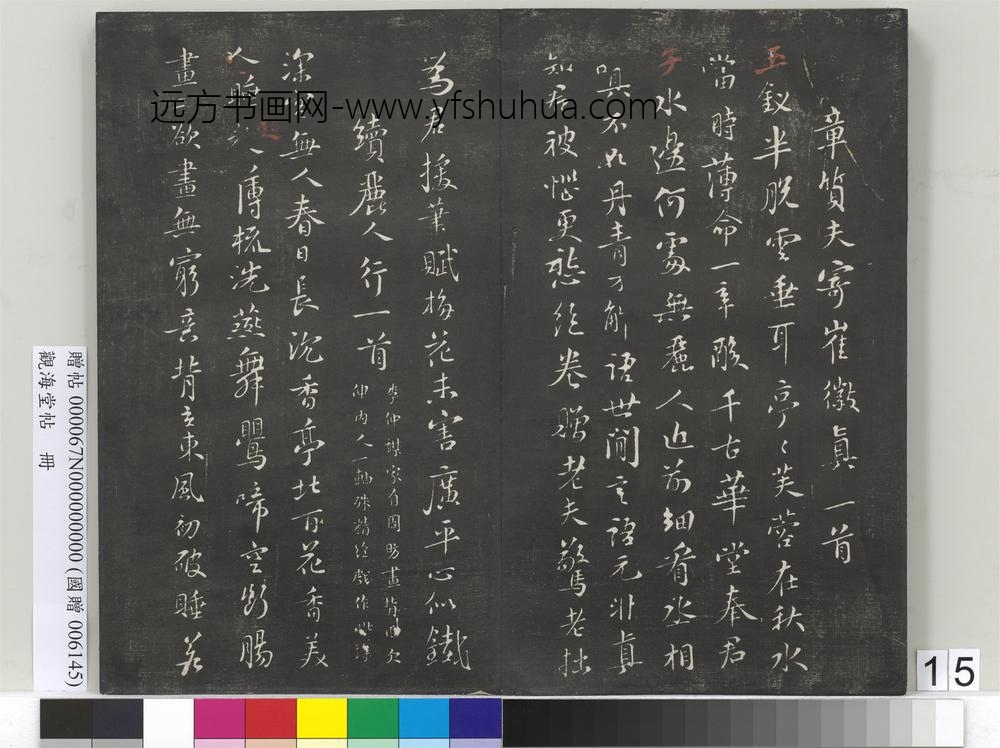 章質夫寄崔徽真一首
玉釵半脫雲垂耳亭々芙蓉在秋水
當時薄命一辛酸千古華堂奉君
子水邊何處無麗人近前細看丞相
嗔不如丹青不解語世間言語元非真
知君被惱更愁絕卷贈老夫驚老拙
為君援筆賦梅花未害廣平心似鐵
續麗人行一首
李仲謀家有周昉畫背面欠
伸內人一軸殊精絕戲作此詩
深宮無人春日長沉香亭北百花香美
人睡起薄梳洗燕舞鶯啼空斷腸
畫欲畫無窮意背立東風初破睡若
远方书画网-www.yfshuhua.com
贈帖 000067N000000000 (國贈 006145)
觀海堂帖 冊
15